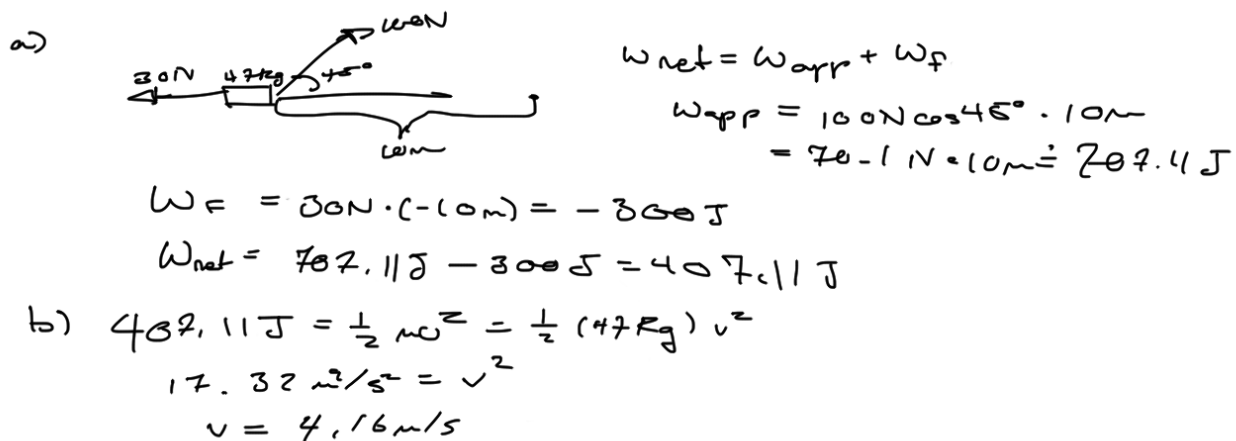 a)
100N
30N 47kg 45°
10m
Wnet = Wapp + Wf
Wapp = 100N cos45° · 10m
= 70.1 N · 10m = 707.11 J
WF = 30N · (-10m) = -300J
Wnet = 707.11J - 300J = 407.11 J
b) 407.11J = 1/2 mv² = 1/2 (47Kg) v²
17.32 m²/s² = v²
v = 4.16m/s